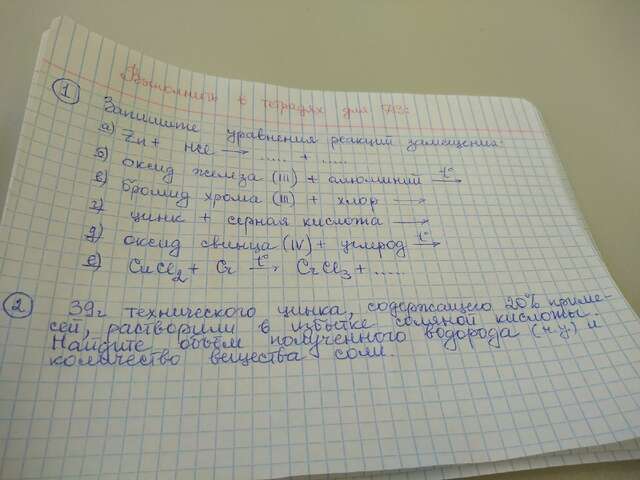 Выполнить в тетрадях для
① Запишите уравнения реакций замещения:
а) Zn + HCl → ...... + ......
б) оксид железа (III) + алюминий t° →
в) бромид хрома (III) + хлор →
г) цинк + серная кислота →
д) оксид свинца (IV) + углерод t° →
е) CuCl₂ + Cr t° → CrCl₃ + ......
② 39г технического цинка, содержащего 20% приме-
сей, растворили в избытке соляной кислоты.
Найдите объём полученного водорода (н.у.) и
количество вещества соли.